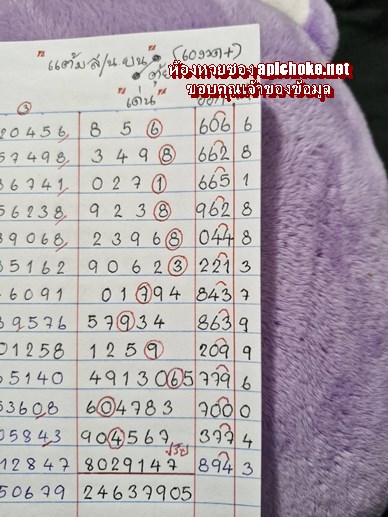 "แต้ม ส/น บน" (เขววด+)
ห้องหวยของ apichoke.net
ขอบคุณเจ้าของข้อมูล
"เด่น"
3
20456 8 5 6 606 6
57498 3 4 9 8 662 8
86741 0 2 7 1 665 1
56238 9 2 3 8 962 8
39068 2 3 9 6 8 044 8
35162 9 0 6 2 3 221 3
46091 0 1 7 9 4 843 7
39576 5 7 9 3 4 863 9
01258 1 2 5 9 209 9
65140 4 9 1 3 0 6 5 779 6
53608 6 0 4 7 8 3 700 0
05843 9 0 4 5 6 7 377 4
12847 8 0 2 9 1 4 7 894 3
50679 2 4 6 3 7 9 0 5